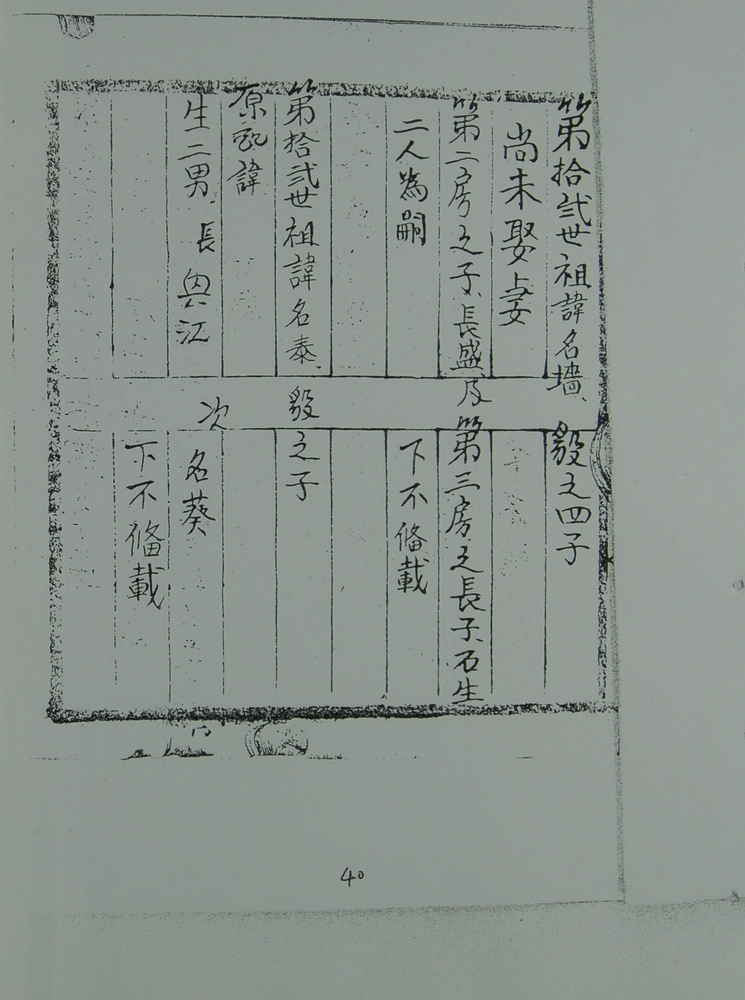 第拾弍世祖諱名墻、毅之四子
尚未娶妻
第二房之子、長盛及第三房之長子、石生
二人為嗣 下不俻載
第拾弍世祖諱名泰 毅之子
原配諱
生二男、長 輿江 次 名葵
下不俻載
40